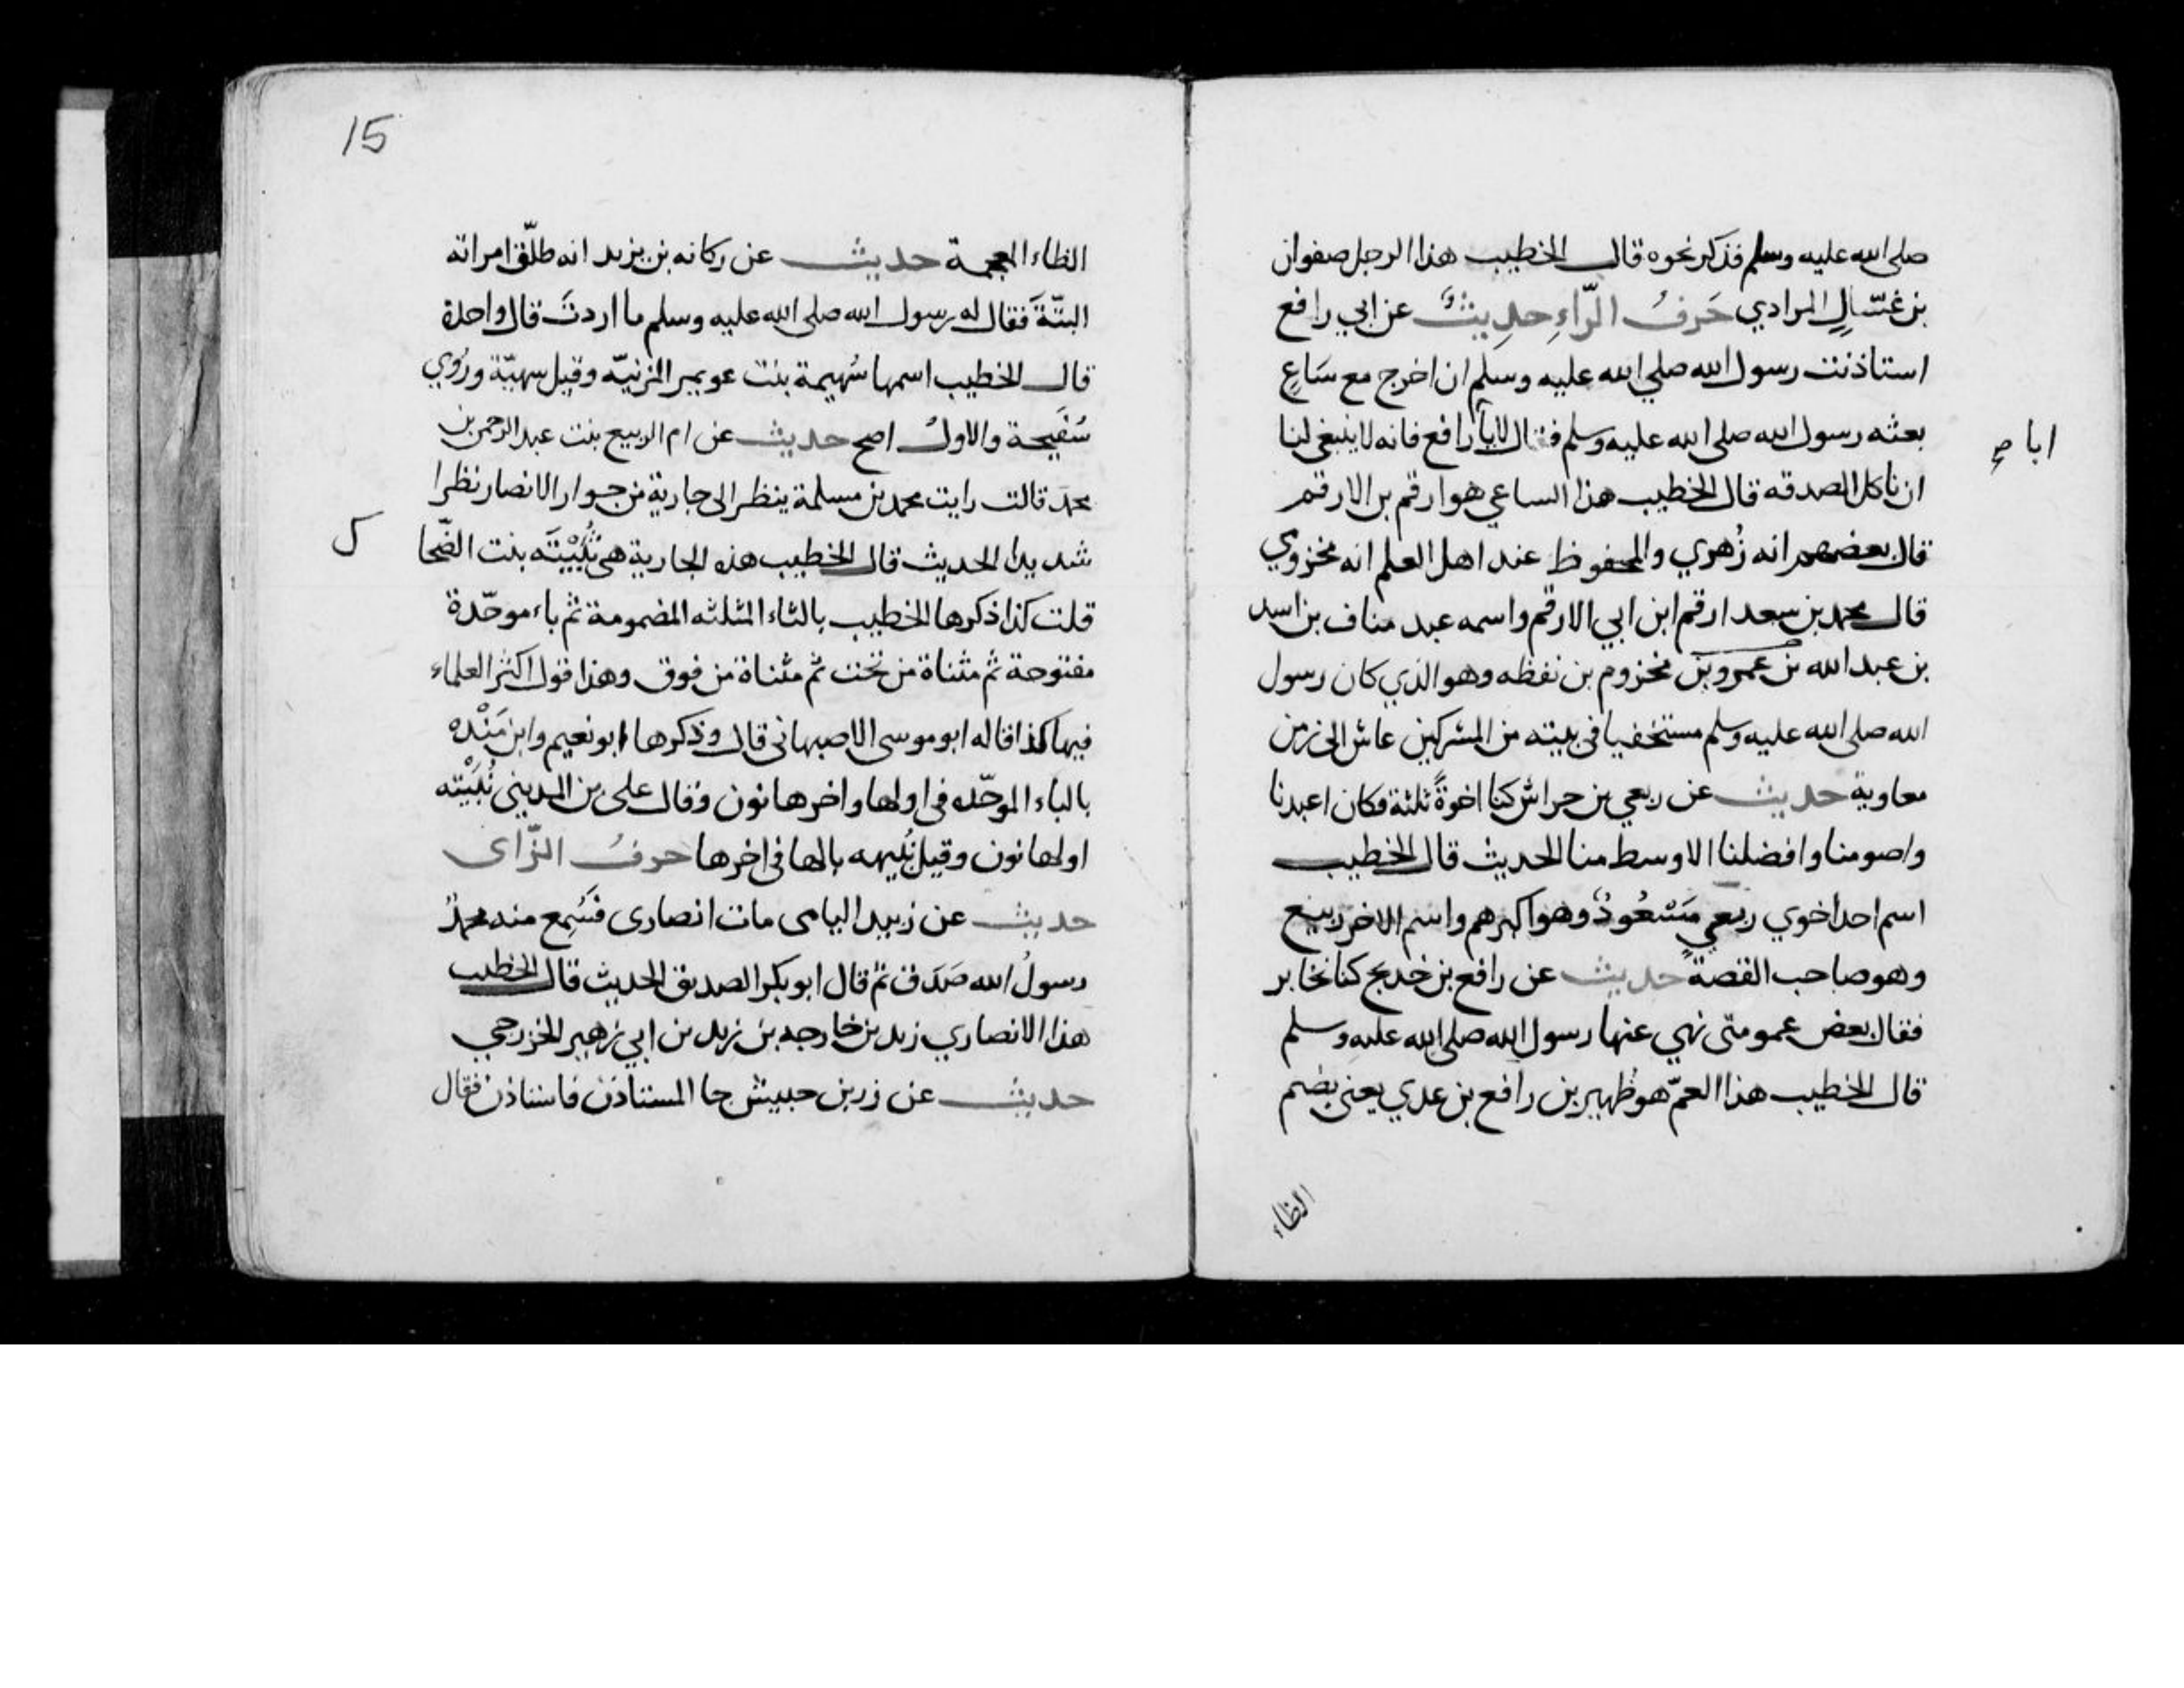 صلى الله عليه وسلم فذكر نحوه قال الخطيب هذا الرجل صفوان
بن غسّالٍ المرادي حَرفُ الرّاءِ حدِيثٌ عن ابي رافع
استاذنت رسول الله صلي الله عليه وسلم ان اخرج مع سَاعٍ
بعثه رسول الله صلى الله عليه وسلم فقال لابا رافع فانه لا ينبغي لنا
ابا صح
ان ناكل الصدقه قال الخطيب هذا الساعي هو ارقم بن الارقم
قال بعضهم انه زُهري والمحفوظ عند اهل العلم انه مخزومي
قال محمد بن سعد ارقم ابن ابي الارقم واسمه عبد مناف بن اسد
بن عبد الله بن عمرو بن مخزوم بن نفظه وهو الذي كان رسول
الله صلى الله عليه وسلم مستخفيا في بيته من المشركين عاش الى زمن
معاوية حديث عن ربعي بن حراش كنا اخوةً ثلثة فكان اعبدنا
واصومنا وافضلنا الاوسط منا الحديث قال الخطيب
اسم احد اخوي ربعي مَسْعُودٌ وهو اكبرهم واسم الاخر ربيع
وهو صاحب القصة حديث عن رافع بن خديج كنا نخابر
فقال بعض عمومتى نهي عنها رسول الله صلى الله عليه وسلم
قال الخطيب هذا العمّ هو ظُهير بن رافع بن عدي يعنى بضم
الظاء
15
الظاء المعجمة حديث عن ركانه بن يزيد انه طلّق امراته
البتّةَ فقال له رسول الله صلى الله عليه وسلم ما اردتَ قال واحدة
قال الخطيب اسمها سُهيمة بنت عويمر المزنيّه وقيل سهيّة ورُوي
سُفَيحة والاولُ اصح حديث عن ام الربيع بنت عبد الرحمن بن
محمد قالت رايت محمد بن مسلمة ينظر الى جارية من جوار الانصار نظرا
شديدا الحديث قال الخطيب هذه الجارية هى ثُبَيْتَه بنت الضّحا
ك
قلت كذا ذكرها الخطيب بالثاء المثلثه المضمومة ثم باء موحّدة
مفتوحة ثم مثناة من تحت ثم مثناة من فوق وهذا قول اكثر العلماء
فيها كذا قاله ابو موسى الاصبهانى قال وذكرها ابو نعيم وابن مَنْده
بالباء الموحّده فى اولها واخرها نون وقال على بن المدينى نُبَيْته
اولها نون وقيل نُبيهه بالها فى اخرها حرفُ الزّاى
حديث عن زبيد اليامى مات انصارى فسُمِع منه محمدٌ
رسولُ الله صَدَق ثم قال ابو بكر الصديق الحديث قال الخطيب
هذا الانصاري زيد بن خارجه بن زيد بن ابي زهير الخزرجي
حديث عن زر بن حبيش جا المستاذن فاستاذن فقال